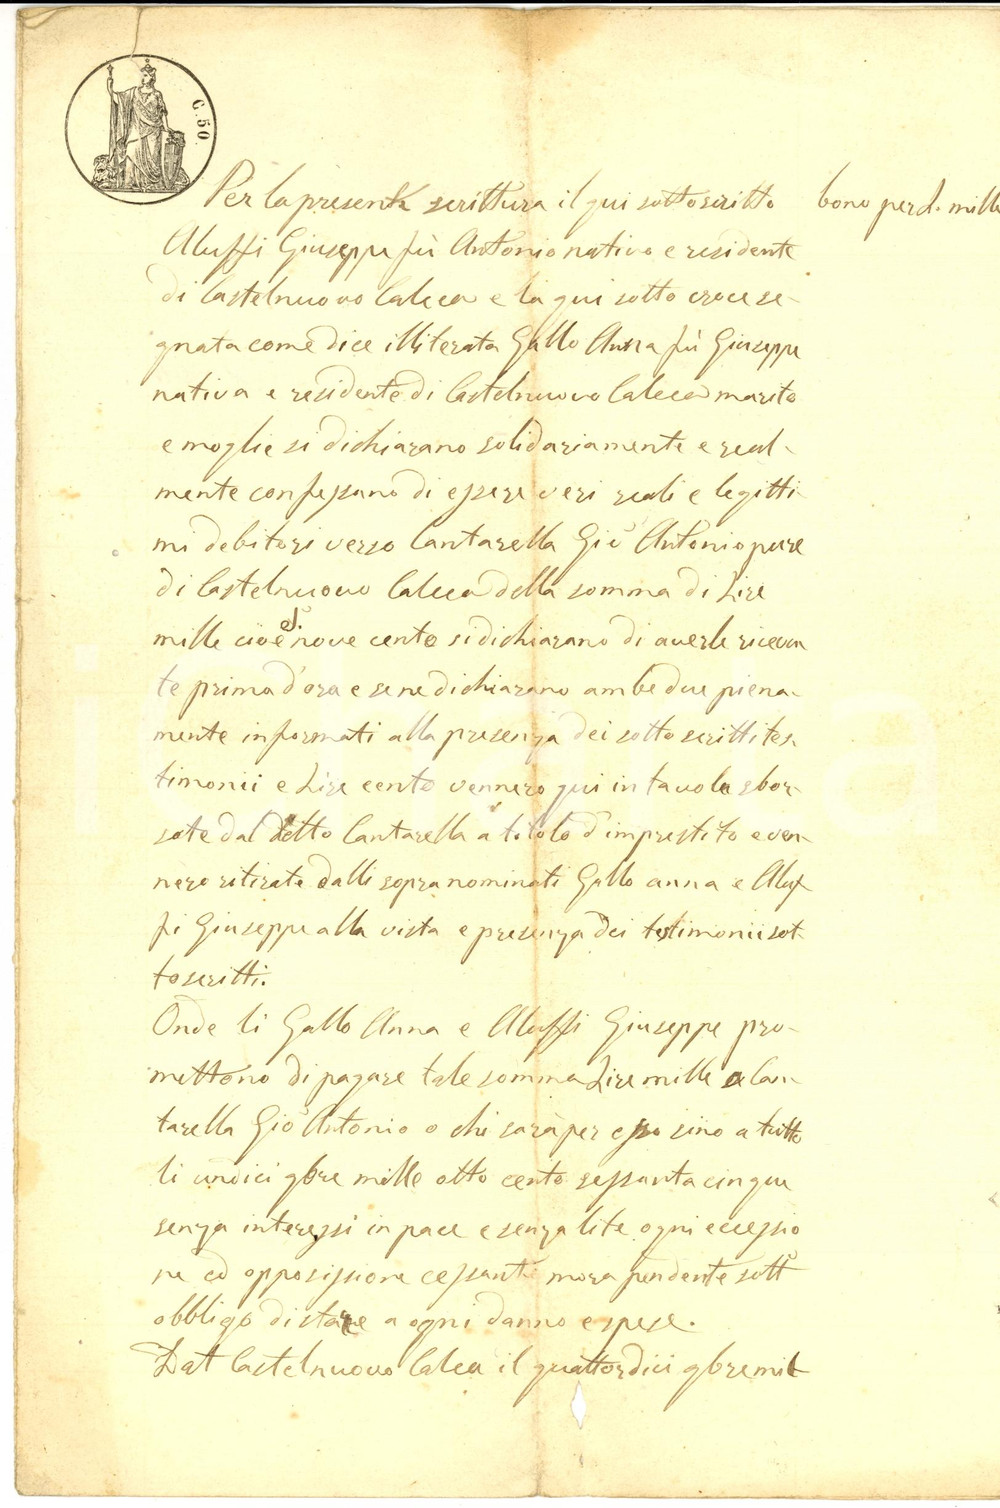 C. 50.
Per la presente scrittura il qui sottoscritto
bono per d. mille
Aluffi Giuseppe fù Antonio nativo e residente
di Castelnuovo Calcea e la qui sotto croce se-
gnata come dice illiterata Gallo Anna fù Giuseppe
nativa e residente di Castelnuovo Calcea marito
e moglie si dichiarano solidariamente e real-
mente confessano di essere veri reali e legitti
mi debitori verso Cantarella Gio Antonio pure
di Castelnuovo Calcea della somma di Lire
mille cioè d. nove cento si dichiarano di averle ricevu
te prima d'ora e se ne dichiarano ambedue piena-
mente informati alla presenza dei sotto scritti tes-
timonii e Lire cento vennero qui in tavola sbor-
sate dal detto Cantarella a titolo d'imprestito e ven-
nero ritirate dalli sopra nominati Gallo anna e Aluf
fi Giuseppe alla vista e presenza dei testimonii sot-
toscritti.
Onde li Gallo Anna e Aluffi Giuseppe pro-
mettono di pagare tale somma Lire mille a Can-
tarella Gio Antonio o chi sarà per esso sino a tutto
li undici 9bre mille otto cento sessanta cinque
senza interessi in pace e senza lite ogni eccessio
ne ed opposissione cessanti mora pendente sott
obbligo di stare a ogni danno e spese.
Dat Castelnuovo Calcea il quattordici 9bre mil